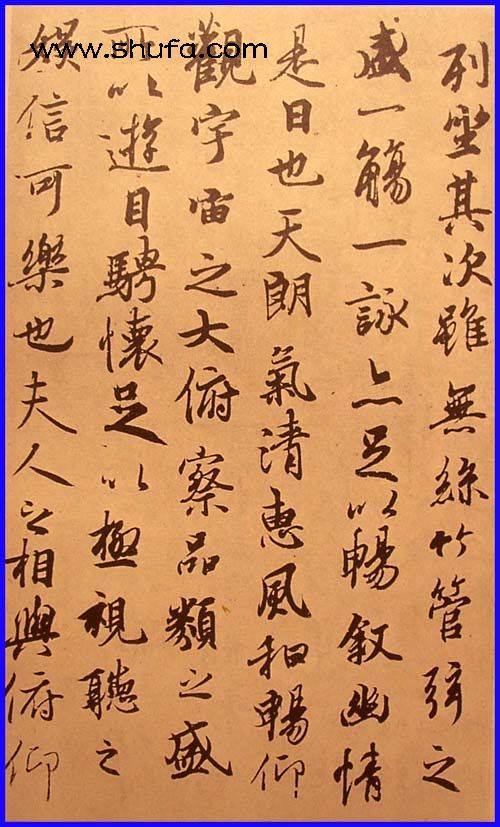 www.shufa.com
列坐其次雖無絲竹管弦之
盛一觴一詠亦足以暢叙幽情
是日也天朗氣清惠風和暢仰
觀宇宙之大俯察品類之盛
所以遊目騁懷足以極視聽之
娛信可樂也夫人之相與俯仰